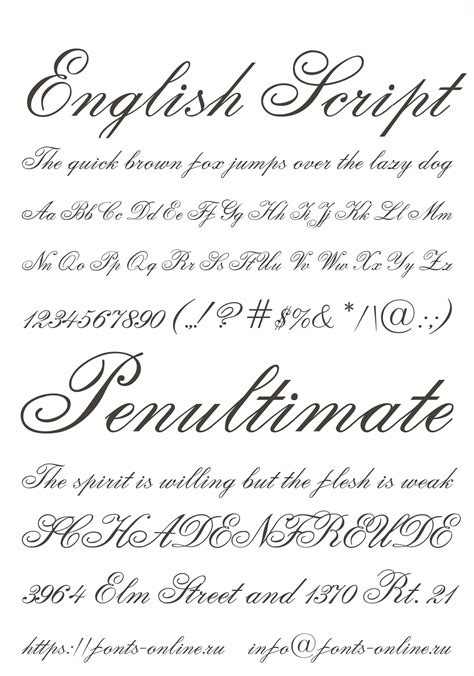 English Script
The quick brown fox jumps over the lazy dog
Aa Bb Cc Dd Ee Ff Gg Hh Ii Jj Kk Ll Mm
Nn Oo Pp Qq Rr Ss Tt Uu Vv Ww Xx Yy Zz
1234567890 (.,! ? # $%& */|\@ .:;)
Penultimate
The spirit is willing but the flesh is weak
SCHADENFREUDE
3964 Elm Street and 1370 Rt. 21
https://fonts-online.ru info@fonts-online.ru